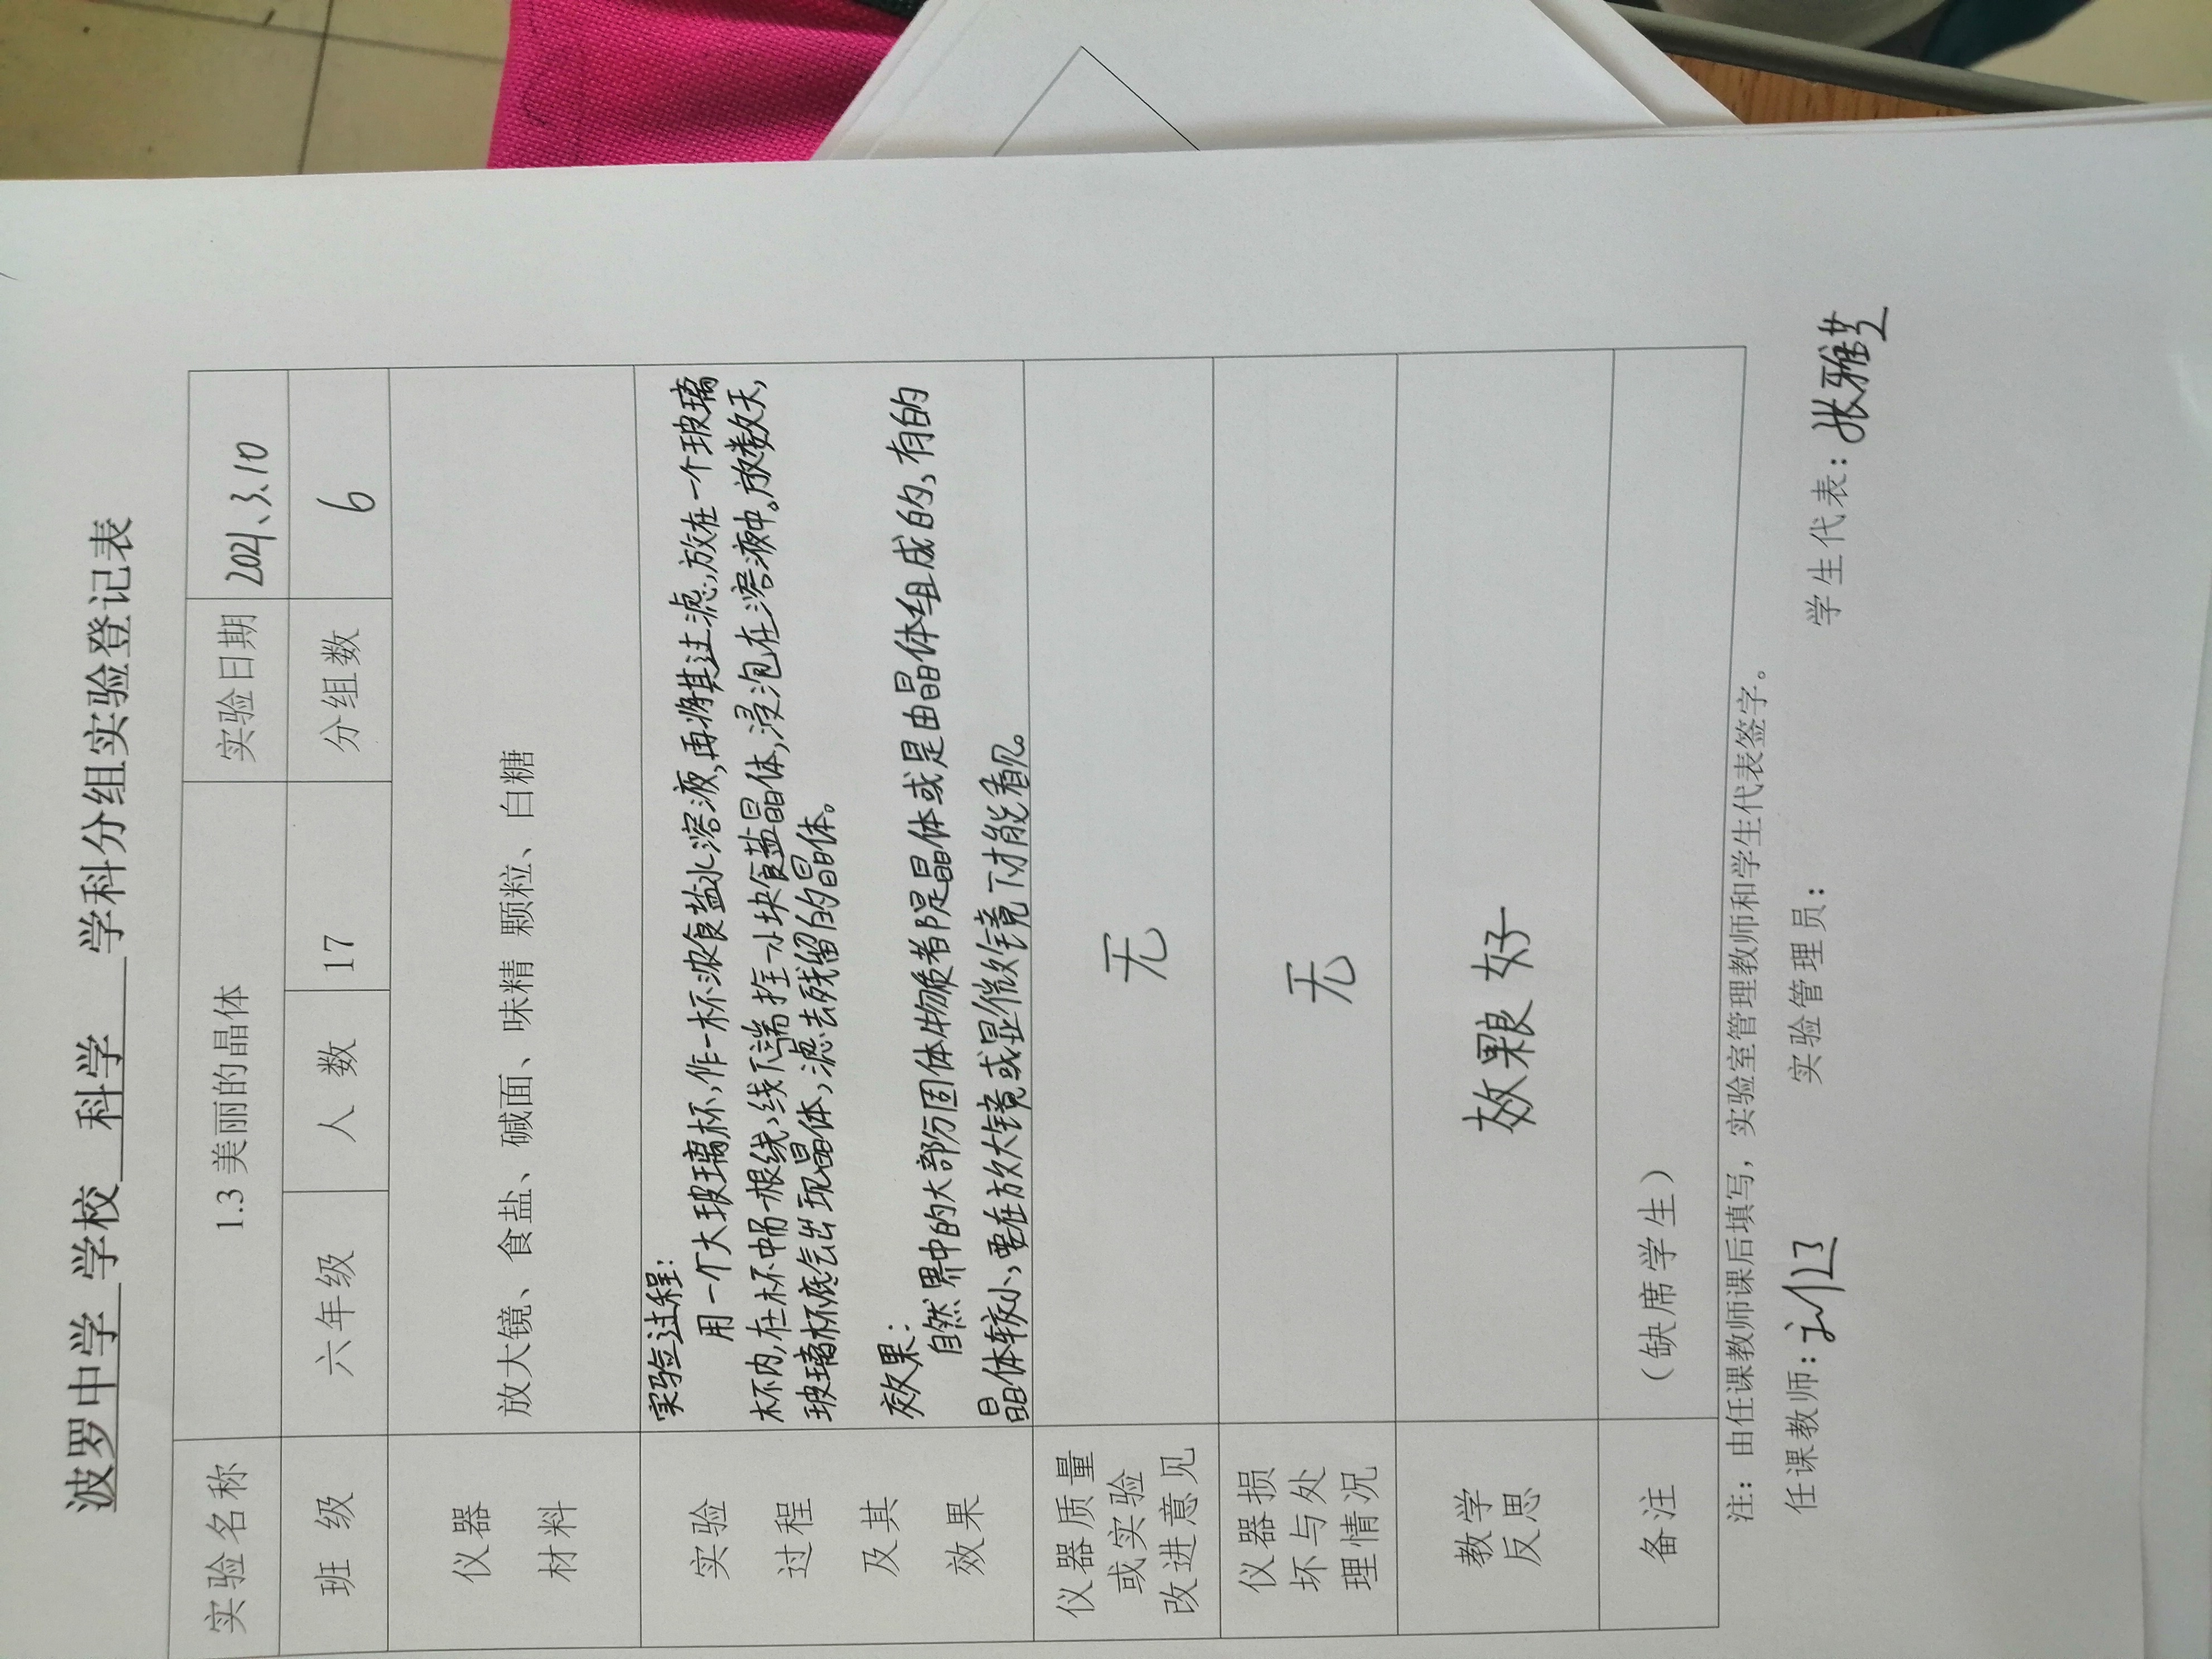 波罗中学 学校 科学 学科分组实验登记表
实验名称 1.3 美丽的晶体 实验日期 2021、3、10
班 级 六年级 人 数 17 分组数 6
仪器
材料
放大镜、食盐、碱面、味精 颗粒、白糖
实验
过程
及其
效果
实验过程:
用一个大玻璃杯,作一杯浓食盐水溶液,再将其过滤,放在一个玻璃
杯内,在杯中吊一根线,线下端拴一小块食盐晶体,浸泡在溶液中。放数天,
玻璃杯底会出现晶体,滤去残留的晶体。
效果:
自然界中的大部分固体物质都是晶体或是由晶体组成的,有的
晶体较小,要在放大镜或显微镜下才能看见。
仪器质量
或实验
改进意见
无
仪器损
坏与处
理情况
无
教学
反思
效果良好
备注
(缺席学生)
注：由任课教师课后填写，实验室管理教师和学生代表签字。
任课教师: 实验管理员: 学生代表: 张雅